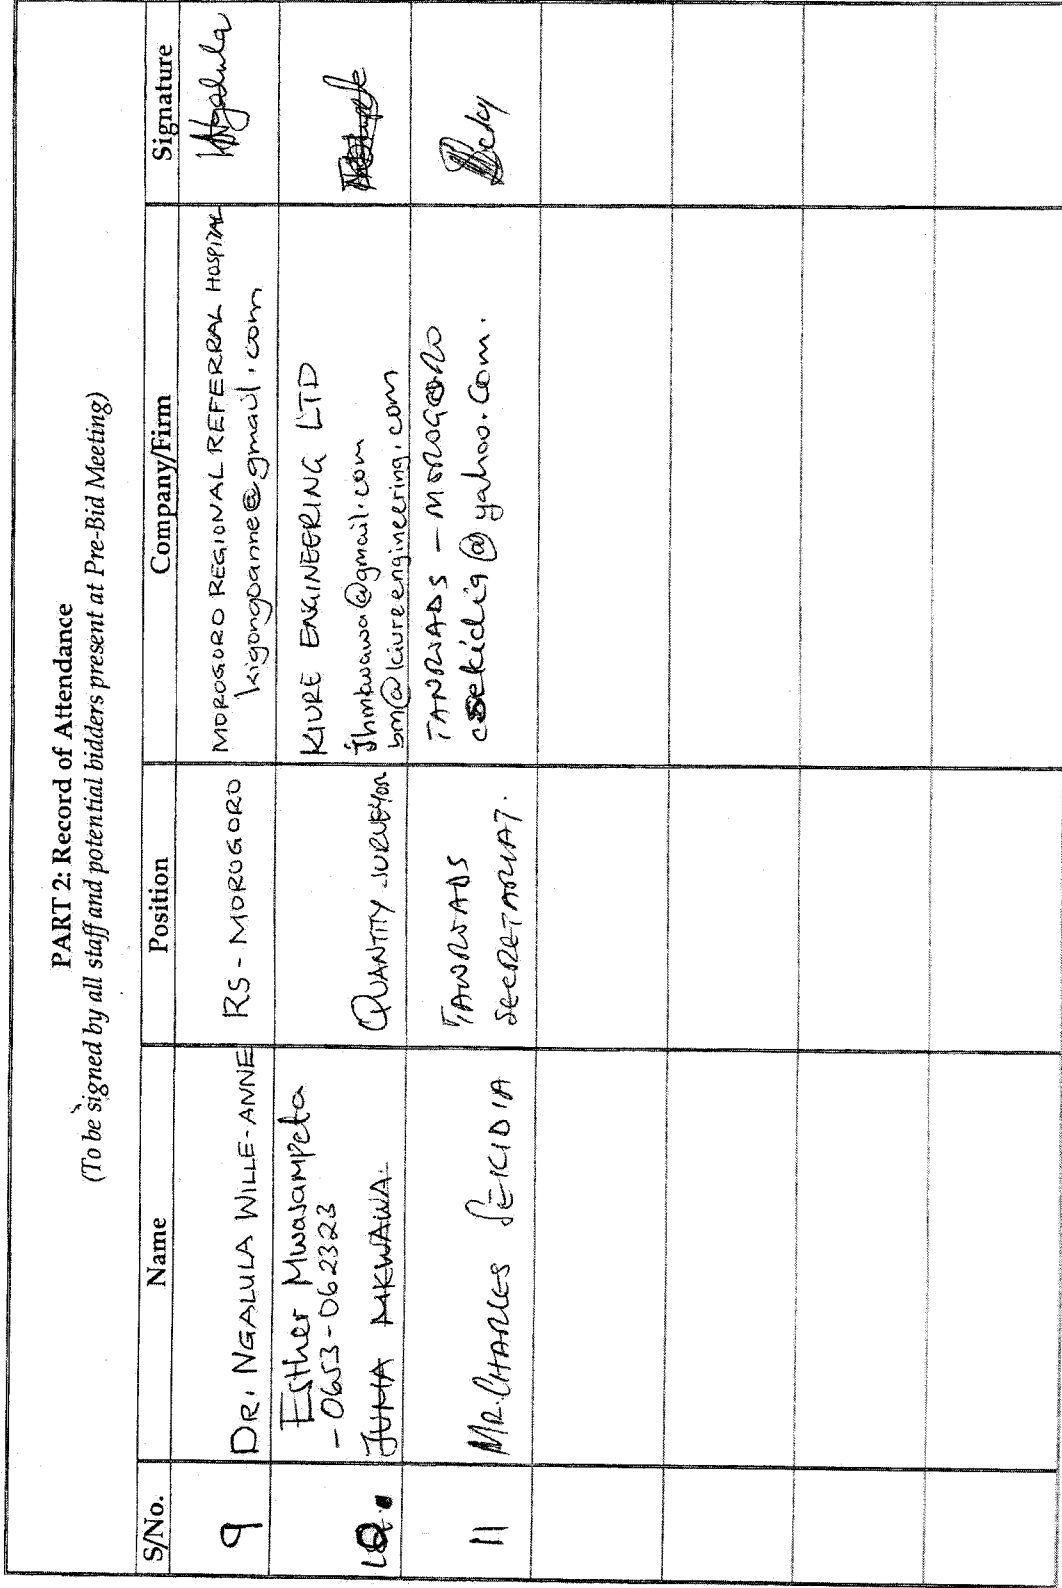 PART 2: Record of Attendance
(To be signed by all staff and potential bidders present at Pre-Bid Meeting)
S/No. Name Position Company/Firm Signature
9 DR. NGALULA WILLE-ANNE RS - MOROGORO MOROGORO REGIONAL REFERRAL HOSPITAL Ngalula
kigongoanne@gmail.com
10. Esther Mwasampeta KIURE ENGINEERING LTD
- 0653-062323
JUMA MKWAWA QUANTITY SURVEYOR jhmkwawa@gmail.com
bm@kiureengineering.com
11 MR. CHARLES SEKIDIA TANROADS TANROADS - MOROGORO
SECRETARIAT. csekidia@yahoo.com.